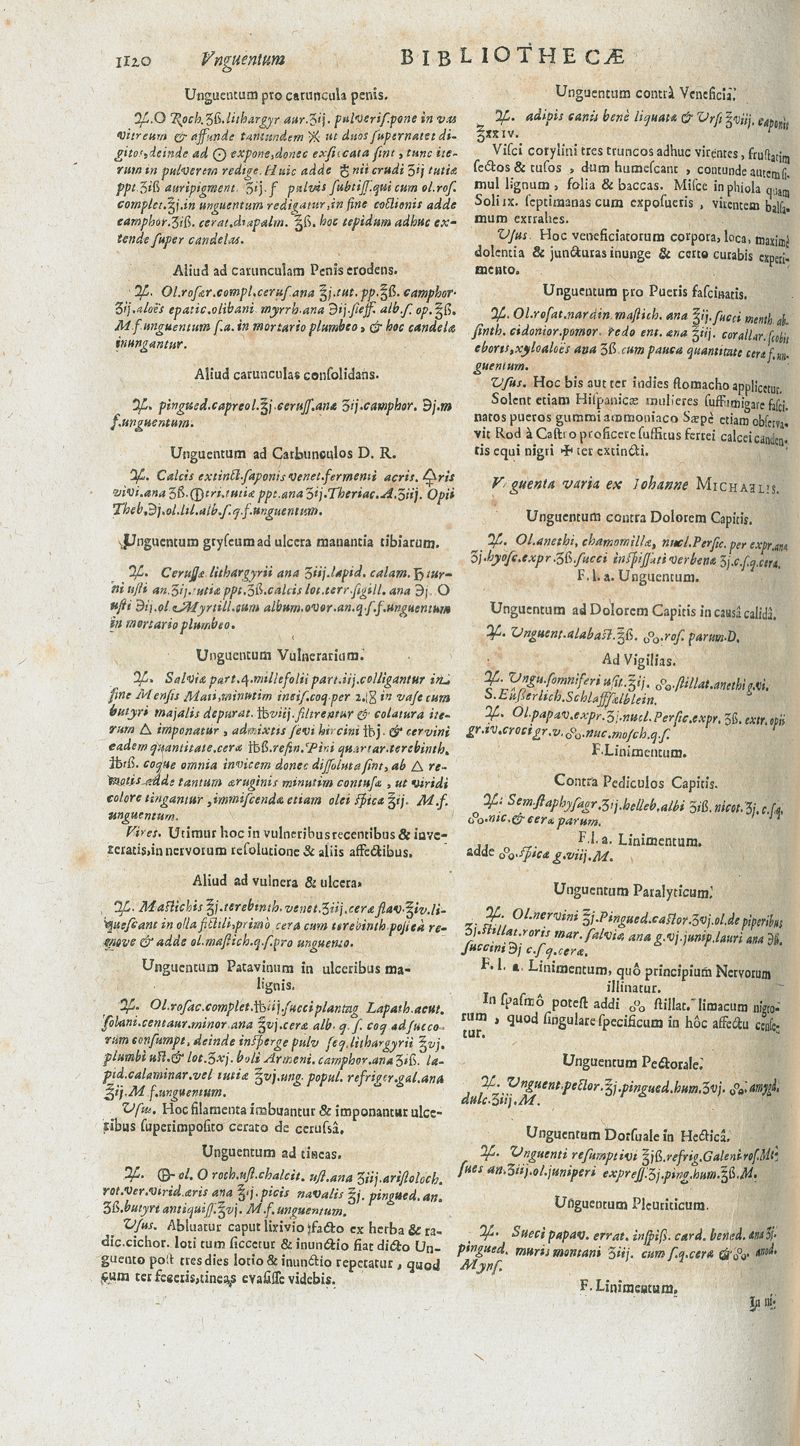 1120 Vnguentum BIBLIOTHECÆ
Unguentum pro caruncula penis.
♃. O Roch.ʒß. lithargyr aur.ʒij. pulveriſ.pone in vas
vitreum & affunde tantundem ut duos ſupernatet di-
gitos, deinde ad ☉ expone, donec exſiccata ſint, tunc ite-
rum in pulverem redige. Huic adde nii crudi ʒij tutiæ
ppt.ʒiß auripigment. ʒij. f pulvis ſubtiſſ. qui cum ol. roſ.
complet.ʒj. in unguentum redigatur, in fine coctionis adde
camphor.ʒiß. cerat. diapalm. ℥ß. hoc tepidum adhuc ex-
tende ſuper candelas.
Aliud ad carunculam Penis erodens.
♃. Ol. roſar. compl. ceruſ. ana ℥j. tut. pp.℥ß. camphor.
ʒij. aloës epatic. olibani myrrh. ana ℈ij. ſieff. alb. ſ. op. ℥ß.
M. f. unguentum ſ.a. in mortario plumbeo, & hoc candelæ
inungantur.
Aliud carunculas conſolidans.
♃. pingued. capreol.℥j. ceruſſ. ana ʒij. camphor. ℈j. m
f. unguentum.
Unguentum ad Carbunculos D. R.
♃. Calcis extinct. ſaponis venet. fermenti acris. ris
vivi. ana ℥ß. tri. tutiæ ppt. ana ʒij. Theriac. A. ʒiij. Opii
Theb. ℈j. ol. lil. alb. ſ. q. f. unguentum.
Unguentum gryſeum ad ulcera manantia tibiarum.
♃. Ceruſſæ lithargyrii ana ʒiij. lapid. calam. ♄ tur-
ni uſti an.ʒij. tutiæ ppt.ʒß. calcis lot. terr. ſigill. ana ℈j. O
uſti ℈ij. ol. Myrtill. cum album. ovor. an. q. ſ. f. unguentum
in mortario plumbeo.
Unguentum Vulnerarium.
♃. Salviæ part. 4. millefolii part. iij. colligantur in
fine Menſis Maii, minutim inciſ. coq. per 24 in vaſe cum
butyri majalis depurat. ℔viij. filtrentur & colaturæ ite-
rum △ imponatur, admixtis ſevi hircini ℔j. & cervini
eadem quantitate. ceræ ℔ß. reſin. Pini quartar. terebinth.
℔ß. coque omnia invicem donec diſſoluta ſint, ab △ re-
motis adde tantum æruginis minutim contuſæ, ut viridi
colore tingantur, immiſcenda etiam olei ſpicæ ℥ij. M. f.
unguentum.
Vires. Utimur hoc in vulneribus recentibus & inve-
teratis, in nervorum reſolutione & aliis affectibus.
Aliud ad vulnera & ulcera.
♃. Maſtichis ℥j. terebinth. venet. ʒiij. ceræ flav. ʒiv. li-
queſcant in olla fictili, primò cera cum terebinth. poſteà re-
move & adde ol. maſtich. q. ſ. pro unguento.
Unguentum Patavinum in ulceribus ma-
lignis.
♃. Ol. roſac. complet. ℔iij. ſucci plantag Lapath. acut.
ſolani. centaur. minor. ana ℥vj. ceræ alb. q. ſ. coq ad ſucco-
rum conſumpt, deinde inſperge pulv ſeq. lithargyrii ℥vj.
plumbi uſt. & lot. ʒxj. boli Armeni. camphor. ana ʒiß. la-
pid. calaminar. vel tutiæ ʒvj. ung. popul. refriger. gal. ana
℥ij. M f. unguentum.
Vſus. Hoc filamenta imbuantur & imponantur ulce-
ribus ſuperimpoſito cerato de ceruſsâ.
Unguentum ad tineas.
♃. ol. O roch. uſt. chalcit. uſt. ana ʒiij. ariſtoloch.
rot. ver. virid. æris ana ʒij. picis navalis ℥j. pingued. an.
ʒß. butyri antiquiſſ. ℥vj. M. f. unguentum.
Vſus. Abluatur caput lixivio facto ex herba & ra-
dic. cichor. loti tum ſiccetur & inunctio fiat dicto Un-
guento poſt tres dies lotio & inunctio repetatur, quod
cum ter feceris, tineas evaſiſſe videbis.
Unguentum contrà Veneficia.
♃. adipis canis benè liquatæ & Urſi ℥viij. caponis
℥xxiv.
Viſci corylini tres truncos adhuc virentes, fruſtatim
ſectos & tuſos, dum humeſcant, contunde autem ſi-
mul lignum, folia & baccas. Miſce in phiola quam
Soli ix. ſeptimanas cum expoſueris, virentem balſa-
mum extrahes.
Vſus. Hoc veneficiatorum corpora, loca, maximè
dolentia & juncturas inunge & certo curabis experi-
mento.
Unguentum pro Pueris faſcinatis.
♃. Ol. roſat. nardin maſtich. ana ʒij. ſucci menth ab-
ſinth. cidonior. pomor. redo ent. ana ʒiij. corallar. ſcobis
eboris, xyloaloës ana ʒß. cum pauca quantitate ceræ f. un-
guentum.
Vſus. Hoc bis aut ter indies ſtomacho applicetur.
Solent etiam Hiſpanicæ mulieres ſuffumigare faſci-
natos pueros gummi ammoniaco Sæpè etiam obſerva-
vit Rod à Caſtro proficere ſuffitus ferrei calcei canden-
tis equi nigri ✠ ter extincti.
Vnguenta varia ex Johanne MICHAELIS.
Unguentum contra Dolorem Capitis.
♃. Ol. anethi, chamomillæ, nucl. Perſic. per expr. ana
ʒj. hyoſc. expr. ʒß. ſucci inſpiſſati verbenæ ʒj. c. ſ. q. cera.
F. l. a. Unguentum.
Unguentum ad Dolorem Capitis in causâ calidâ.
♃. Unguent. alabaſt. ℥ß. roſ. parum. D.
Ad Vigilias.
♃. Ungu. ſomniferi uſit. ℥ij. ſtillat. anethi g. vi.
S. Euſſerlich. Schlaffſalblein.
♃. Ol. papav. expr. ʒj. nucl. Perſic. expr. ʒß. extr. opii
gr. iv. croci gr. v. nuc. moſch. q. ſ.
F. Linimentum.
Contra Pediculos Capitis.
♃. Sem. ſtaphyſagr. ʒij. helleb. albi ʒiß. nicot. ʒj. c. ſ. q.
nic. & cera parum.
F. l. a. Linimentum.
adde ſpicæ g. viij. M.
Unguentum Paralyticum.
♃. Ol. nervini ℥j. Pingued. caſtor. ʒvj. ol. de piperibus
ʒj. ſtillat. roris mar. ſalviæ ana g. vj. junip. lauri ana ℈ß.
ſuccini ℈j c. ſ. q. ceræ.
F. l. a. Linimentum, quô principium Nervorum
illinatur.
In ſpaſmô poteſt addi ſtillat. limacum nigro-
rum, quod ſingulare ſpecificum in hôc affectu cenſe-
tur.
Unguentum Pectorale.
♃. Unguent. pector. ℥j. pingued. hum. ʒvj. amygd.
dulc. ʒiij. M.
Unguentum Dorſuale in Hecticâ.
♃. Unguenti reſumptivi ℥jß. refrig. Galeni roſ. Me-
ſues an. ʒiij. ol. juniperi expreſſ. ʒj. ping. hum. ℥ß. M.
Unguentum Pleuriticum.
♃. Succi papav. errat. inſpiß. card. bened. ana ʒj.
pingued. muris montani ʒiij. cum ſ. q. ceræ & anod.
Mynſ.
F. Linimentum.